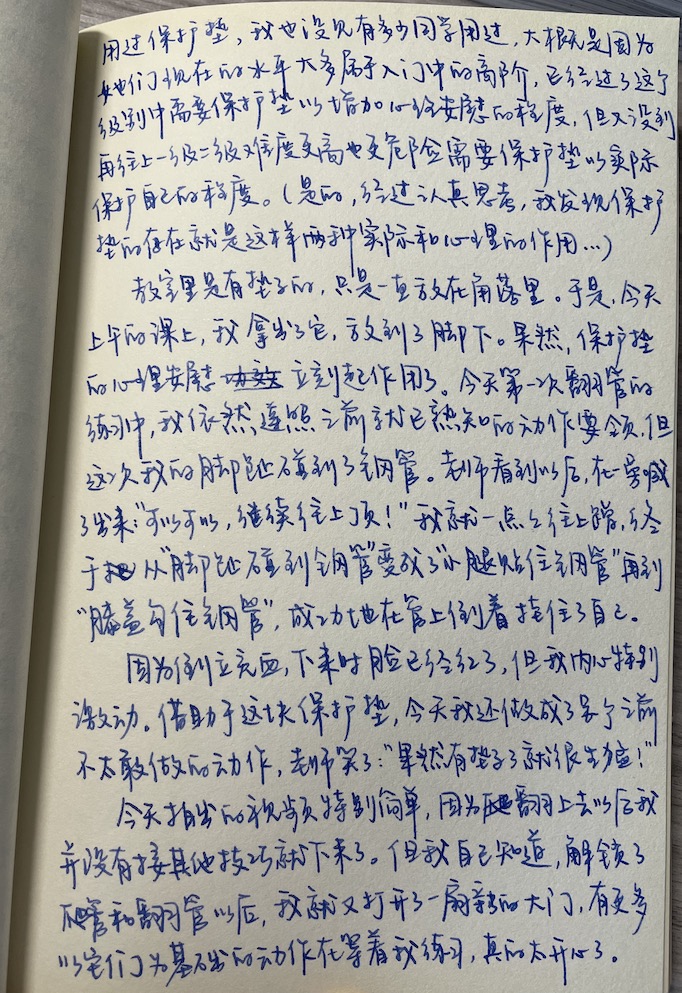 用过保护垫，我也没见有多少同学用过，大概是因为
她们现在的水平大多属于入门中的高阶，已经过了这个
级别中需要保护垫以增加心理安慰的程度，但又没到
再往上一级二级难度更高也更危险需要保护垫以实际
保护自己的程度。（是的，经过认真思考，我发现保护
垫的存在就是这样两种实际和心理的作用…）
教室里是有垫子的，只是一直放在角落里。于是，今天
上午的课上，我拿出了它，放到了脚下。果然，保护垫
的心理安慰立刻起作用了。今天第一次翻管的
练习中，我依然遵照之前就已熟知的动作要领，但
这次我的脚趾碰到了钢管。老师看到以后，在一旁喊
了出来：“可以可以，继续往上顶！”我就一点点往上蹭，终
于从“脚趾碰到钢管”变成了“小腿贴住钢管”再到
“膝盖勾住钢管”，成功地在管上倒着挂住了自己。
因为倒立充血，下来时脸已经红了，但我内心特别
激动。借助于这块保护垫，今天我还做成了另个之前
不太敢做的动作，老师笑了：“果然有垫子了就很生猛！”
今天拍出的视频特别简单，因为翻上去以后我
并没有接其他技巧就下来了。但我自己知道，解锁了
爬管和翻管以后，我就又打开了一扇新的大门，有更多
以它们为基础的动作在等着我练习，真的太开心了。